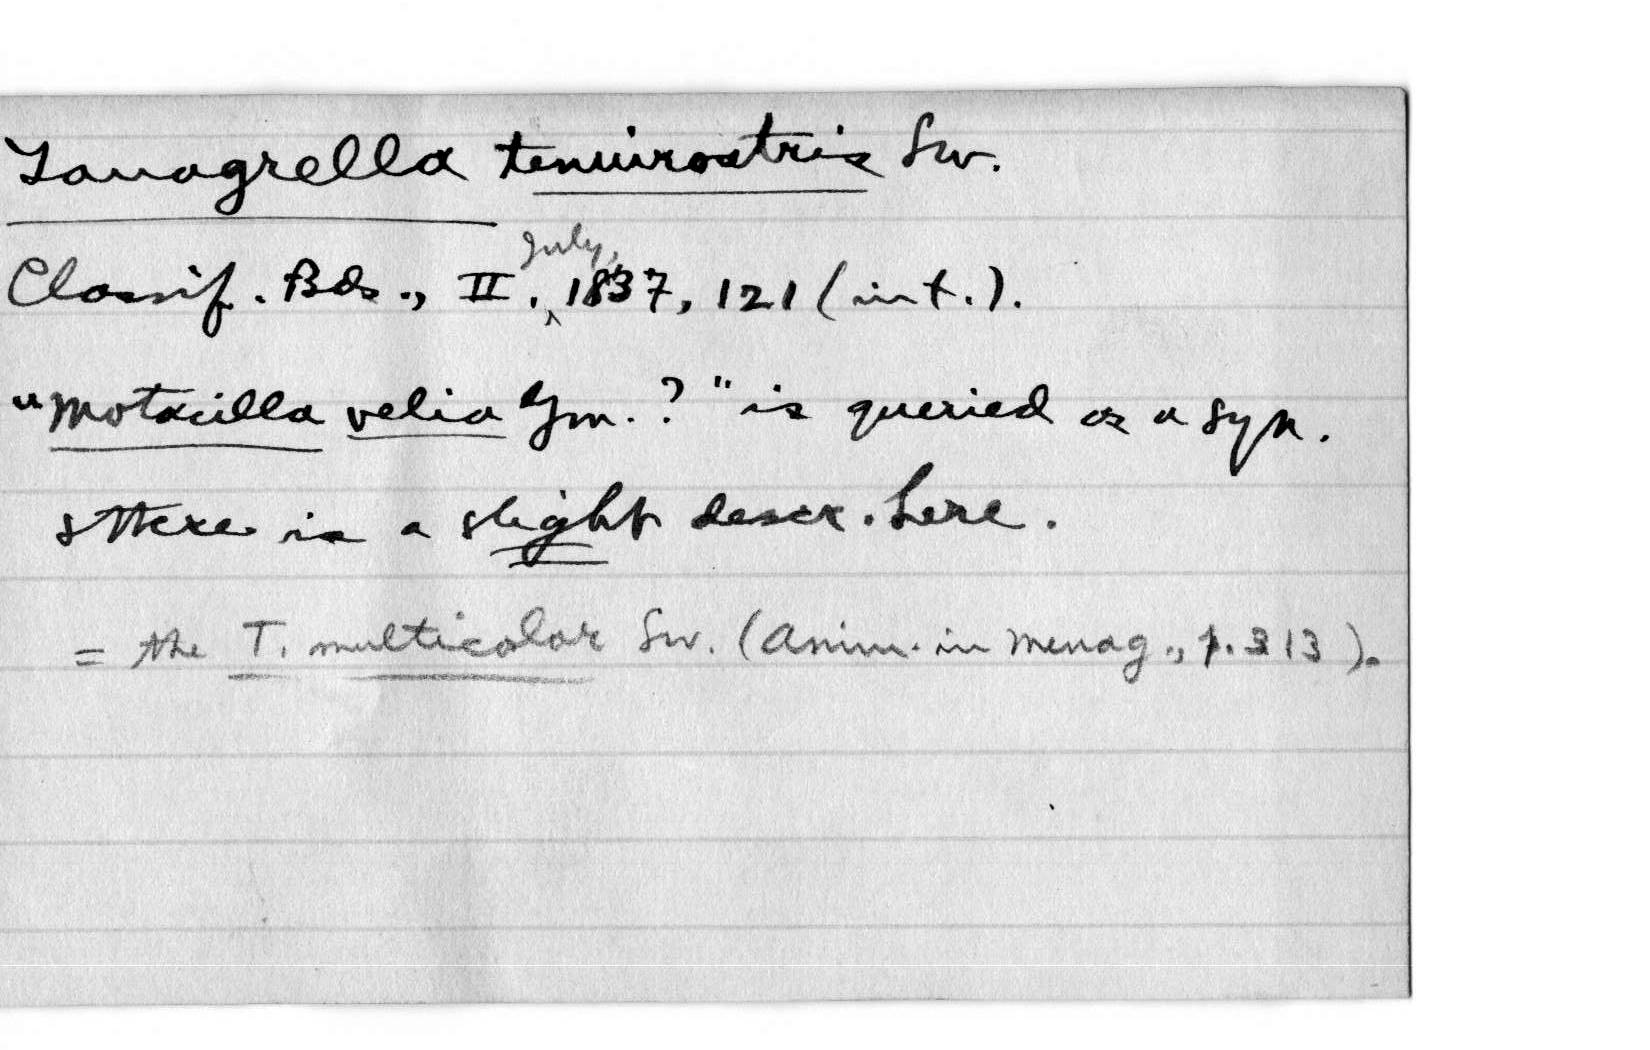 Tanagrella tenuirostris Sw.
Classif. Bds., II, July, 1837, 121 (int.).
"Motacilla velia Gm.?" is queried as a syn.
& there is a slight descr. here.
= the T. multicolor Sw. (Anim. in Menag., p. 313).